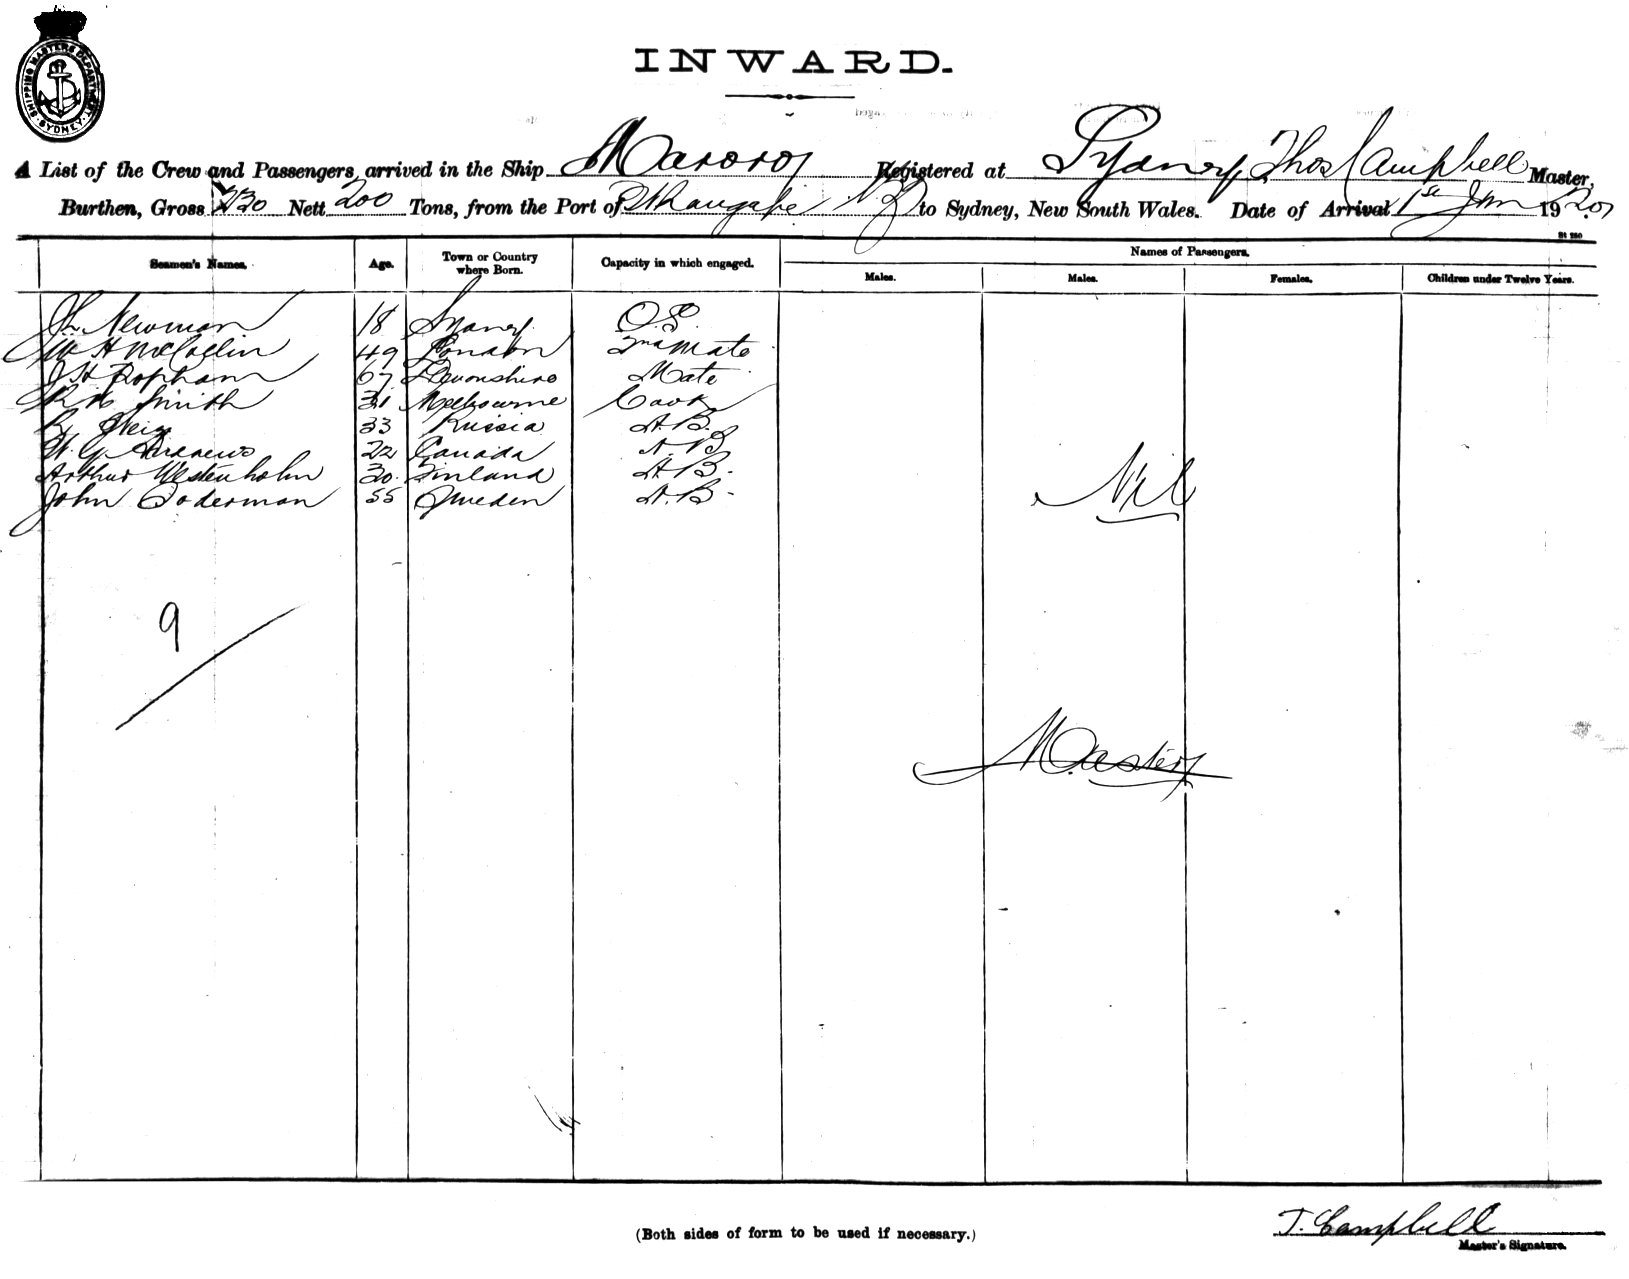 SHIPPING MASTERS DEPARTMENT
SYDNEY
INWARD.
A List of the Crew and Passengers arrived in the Ship Mororoy Registered at Sydney, Thos Campbell Master,
Burthen, Gross 230 Nett 200 Tons, from the Port of NZ to Sydney, New South Wales. Date of Arrival 1st Jan 1920
Seamen's Names. Age. Town or Country where Born. Capacity in which engaged. Names of Passengers.
Males. Males. Females. Children under Twelve Years.
Newman 18 Sydney O.S.
W H McCallin 49 London 2nd Mate
J H Popham 67 Devonshire Mate
Smith 31 Melbourne Cook
33 Russia A.B.
Andrews 22 Canada A.B
Arthur Westenholm 30. Finland A.B.
John Soderman 55 Sweden A.B.
Nil
9
Master
(Both sides of form to be used if necessary.)
T. Campbell
Master's Signature.